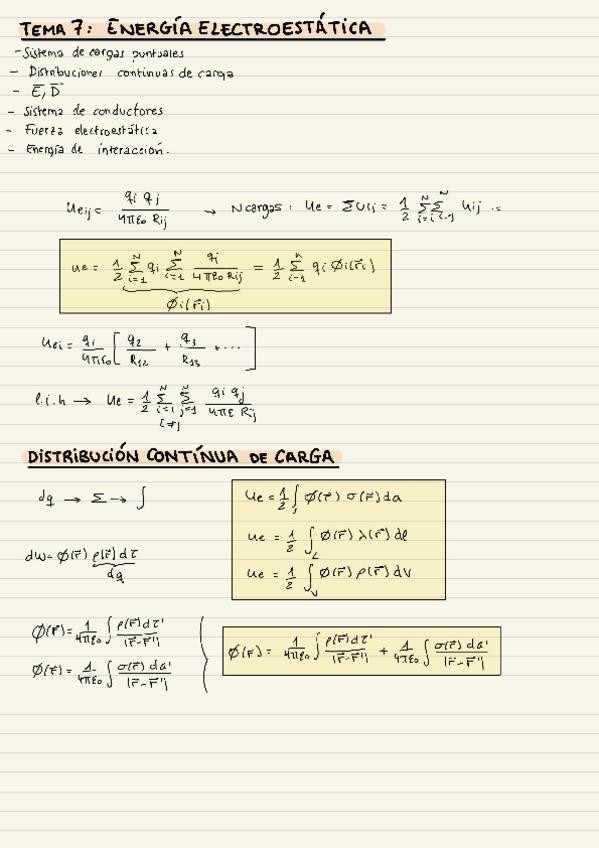 TEMA 7: ENERGÍA ELECTROESTÁTICA
- Sistema de cargas puntuales
- Distribuciones continuas de carga
- E̅, D̅
- Sistema de conductores
- Fuerza electroestática
- Energía de interacción.
Ueij = qi qj / 4πε0 Rij → N cargas: Ue = ΣUij = 1/2 Σ Σ Uij
Ue = 1/2 Σ(i=1, N) qi Σ(i=1, N) qj / 4πε0 Rij = 1/2 Σ(i=1, n) qi Øi(r̅i)
Øi(r̅i)
Uei = qi / 4πε0 [ q2 / R12 + q3 / R13 + ... ]
l.i.h → Ue = 1/2 Σ(i=1, N) Σ(j=1, N) qi qj / 4πε Rij
i≠j
DISTRIBUCIÓN CONTÍNUA DE CARGA
dq → Σ → ∫
Ue = 1/2 ∫s Ø(r̅) σ(r̅) da
Ue = 1/2 ∫L Ø(r̅) λ(r̅) dl
Ue = 1/2 ∫v Ø(r̅) ρ(r̅) dv
dw = Ø(r̅) ρ(r̅) dτ
dq
Ø(r̅) = 1/4πε0 ∫ ρ(r̅) dτ' / |r̅-r̅'|
Ø(r̅) = 1/4πε0 ∫ σ(r̅) da' / |r̅-r̅'|
Ø(r̅) = 1/4πε0 ∫ ρ(r̅) dτ' / |r̅-r̅'| + 1/4πε0 ∫ σ(r̅) da' / |r̅-r̅'|